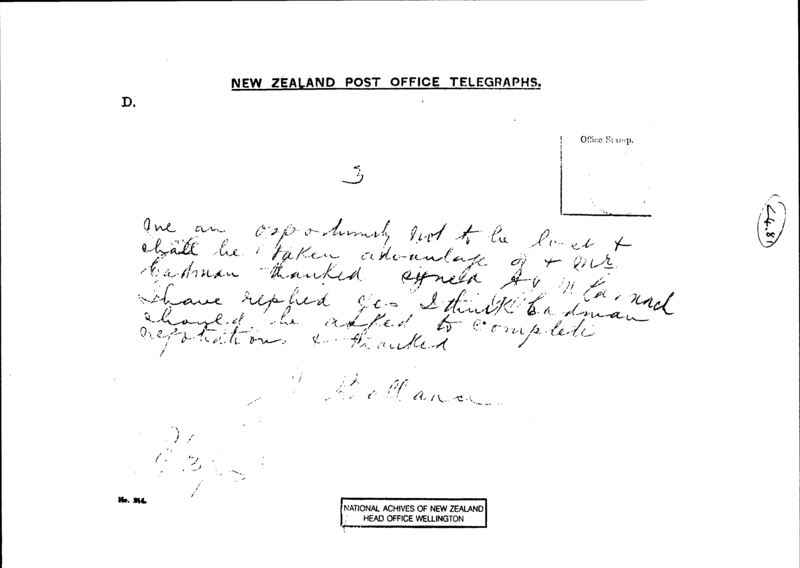 NEW ZEALAND POST OFFICE TELEGRAPHS.
D.
Office Stamp.
3
24.81
me an opportunity not to be lost &
shall be taken advantage of & Mr
Cadman thanked signed
I have replied yes I think Cadman
should be asked to complete
negotiations & thanked
No. 214.
NATIONAL ACHIVES OF NEW ZEALAND
HEAD OFFICE WELLINGTON